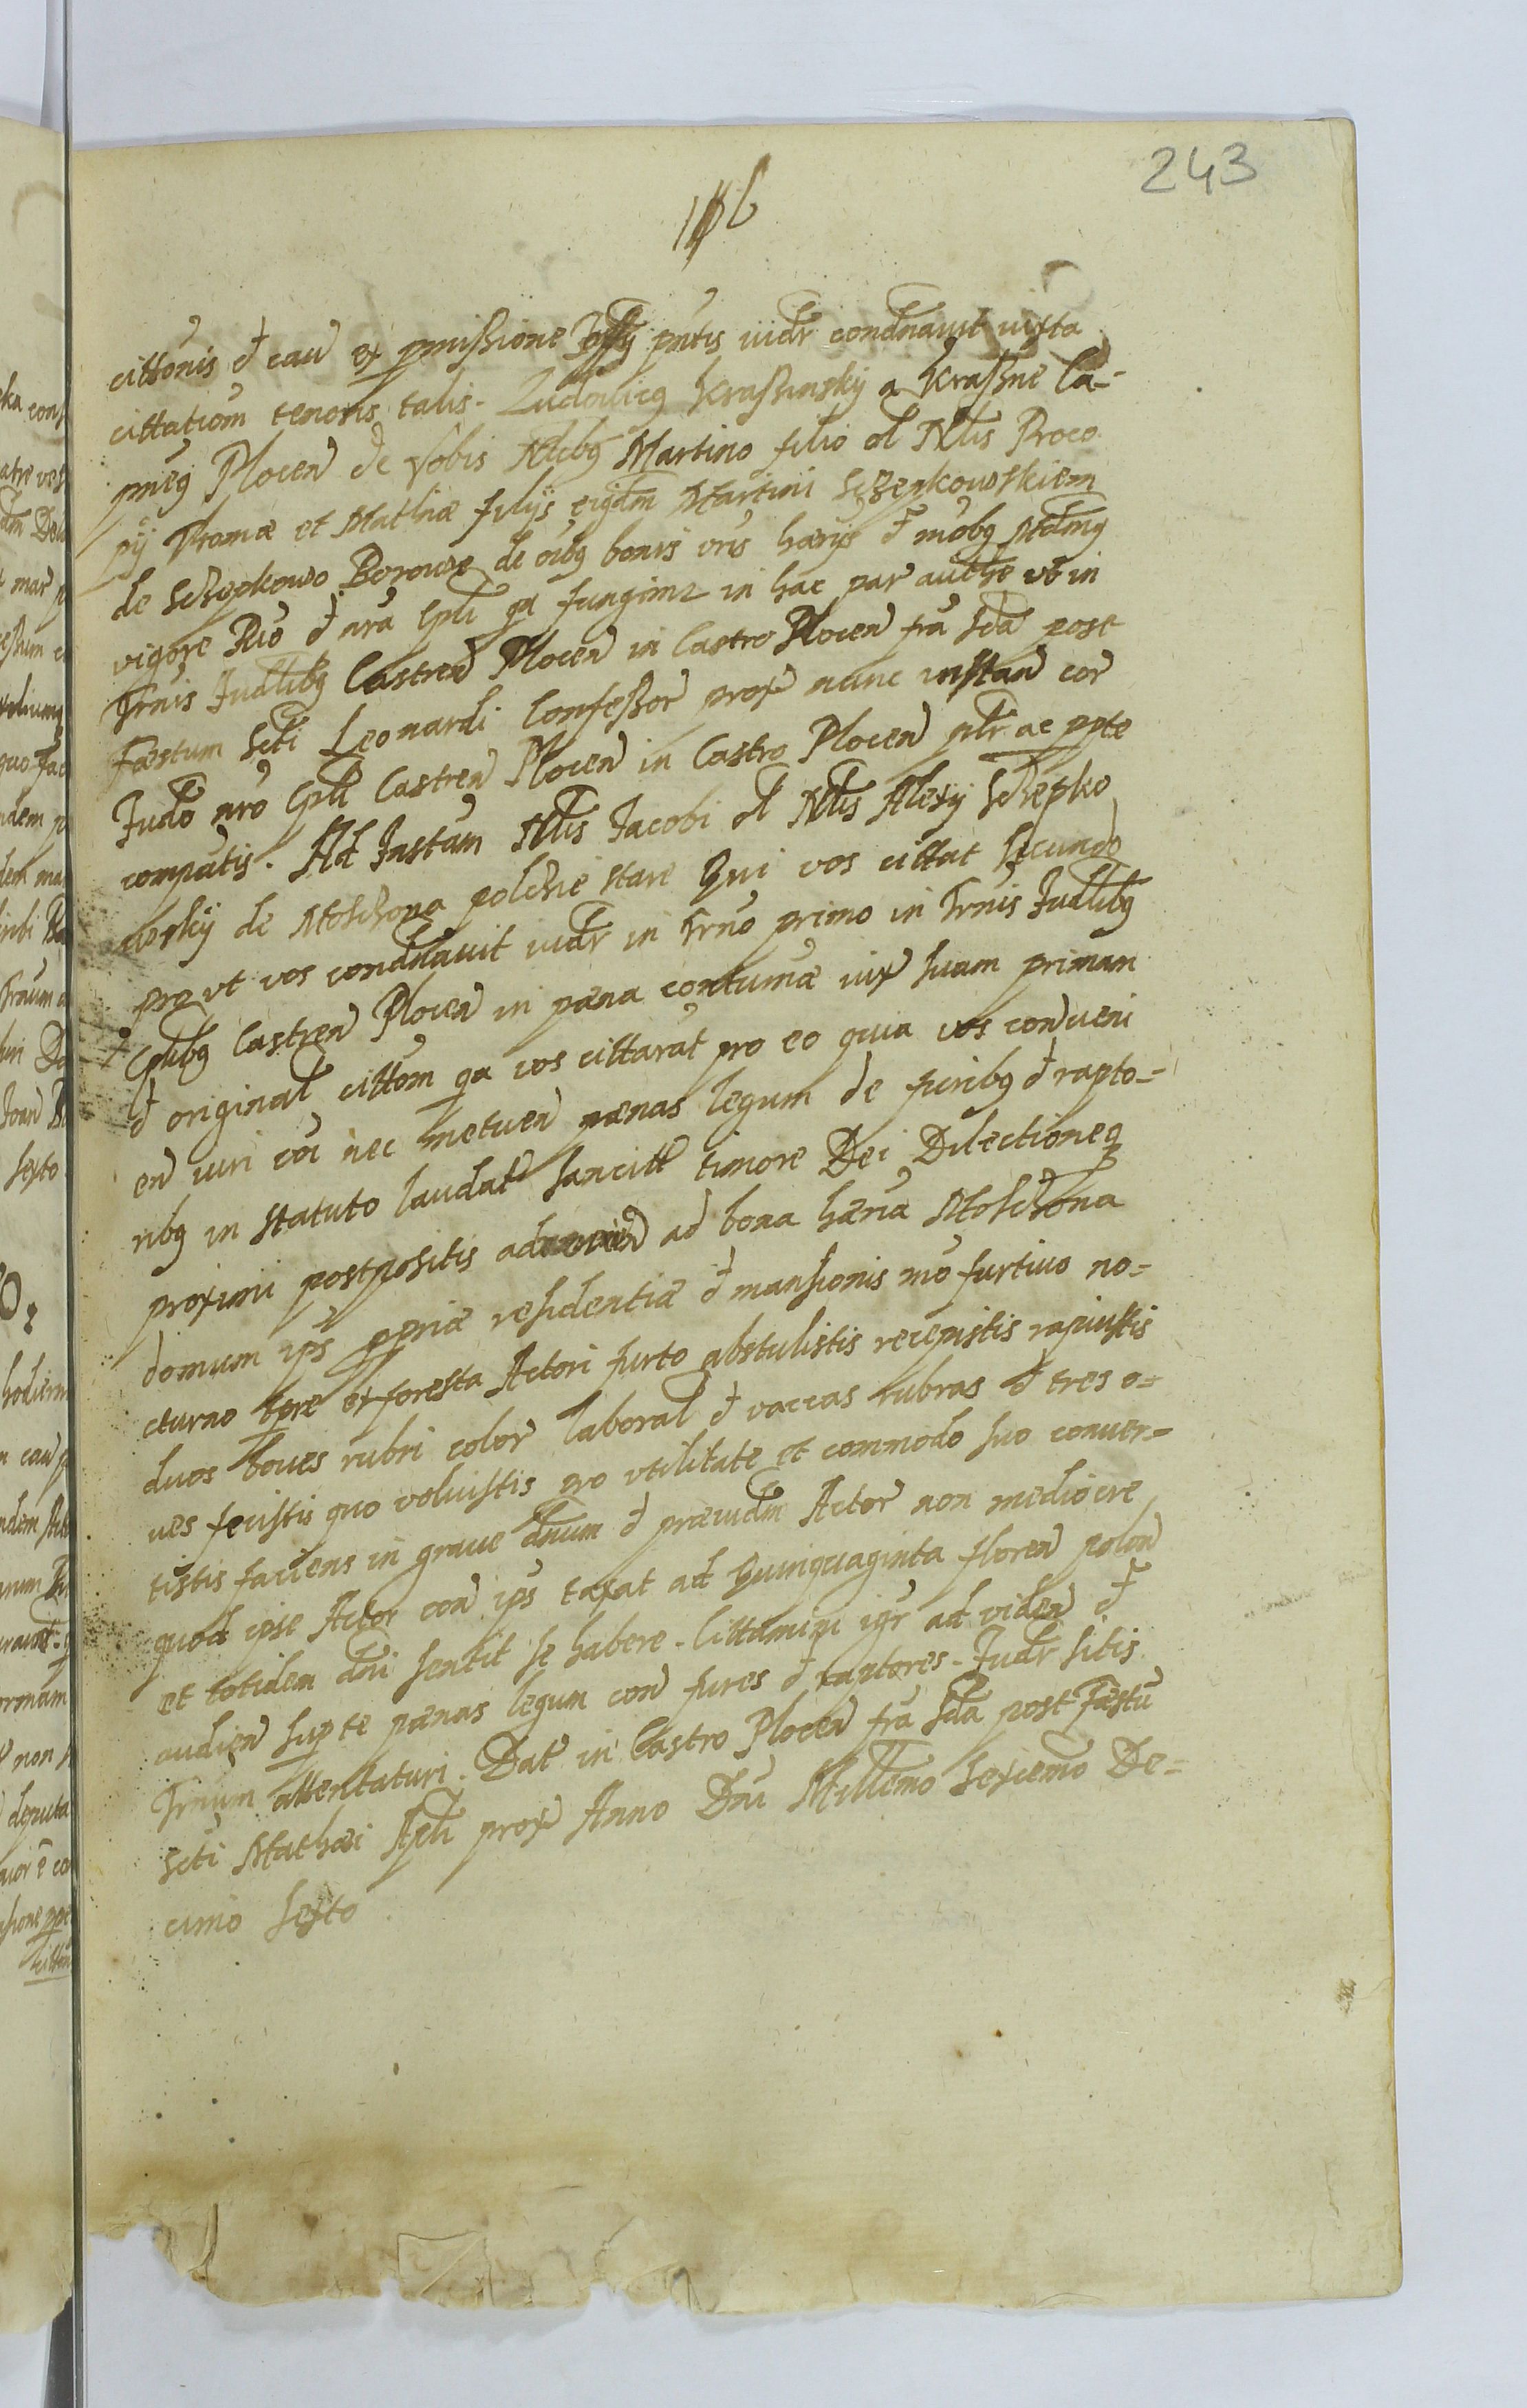 243
cittōnis et cau ex pmissione pn̄tis iudr condn̄auit iuxta
cittatiom tenoris talis. Ludouicq Krassinskÿ a Krassne Ca-
pn̄eq Plocen de Vobis Nlibq Martino filio ol Nlis Proco
pÿ Thomæ et Mathiæ filÿs eiqdm Martini Sczepkowskiem
de Sczepkowo Borowe de oībq bonis vr̄is hærijs et mobq
vigore Rīo et nr̄a Cpli qa fungimr in hac par authe vt in
Trn̄is Judlibq Castren Plocen in Castro Plocen fr̄a Scda post
Fæstum Scti Leonardi Confessor prox nunc instan cor
Judō nrō Cpli Castren Plocen in Castro Plocen plr ac ppte
compn̄tis. Ad Instan̄ Nlis Jacobi ol Nlis Alexÿ Sczepko
wskÿ de Moschona polchie stare Qui vos cittat secundo
pro vt vos condn̄auit iudr in Trn̄o primo in Trn̄is Judlibq
Cplibq Castren Plocen in pæna contumæ iux suam primam
et original cittom qa vos cittarat pro eo quia vos conueni
en iuri coi nec metuen pænas legum de furibq et rapto-
ribq in statuto laudat sancitt timore Dei Dilectioneq
proximi postpositis ad bona hær̄ia Moschona
domum ips ppriæ residentiæ et mansionis mō furtiuo no-
cturno tpre ex foresta Actori furto abstulistis recepistis rapuistis
duos boues rubri color laboral et vaccas rubras et tres o-
ues fecistis quo voluistis pro vtilitate et commodo suo conuer-
tistis faciens in graue dn̄um et præiudm Actor non mediocre
quod ipse Actor con ips taxat ad Quinquaginta floren polon
et totidem dn̄i sentit se habere. Cittamini igr ad viden et
audien sup te pænas legum con fures et raptores. Judr sitis
Trn̄um attentaturi. Dat in Castro Plocen fr̄a Scda post Fæstū
Scti Mathæi Apli prox Anno Dn̄i Millemo Sexcemo De-
cimo sexto